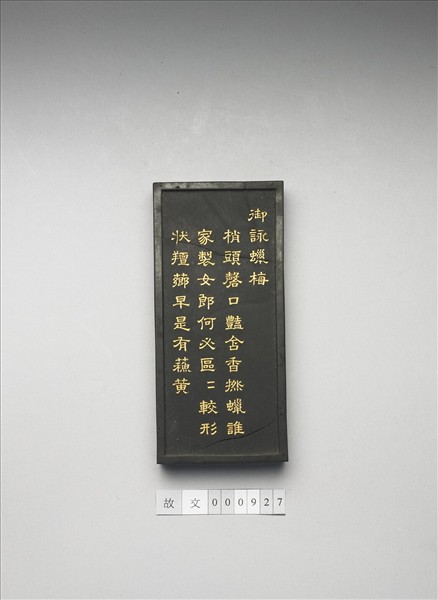 御詠蠟梅
梢頭磬口豔含香撚蠟誰
家製女郎何必區〻較形
狀羶薌早是有蘓黄
故文000927